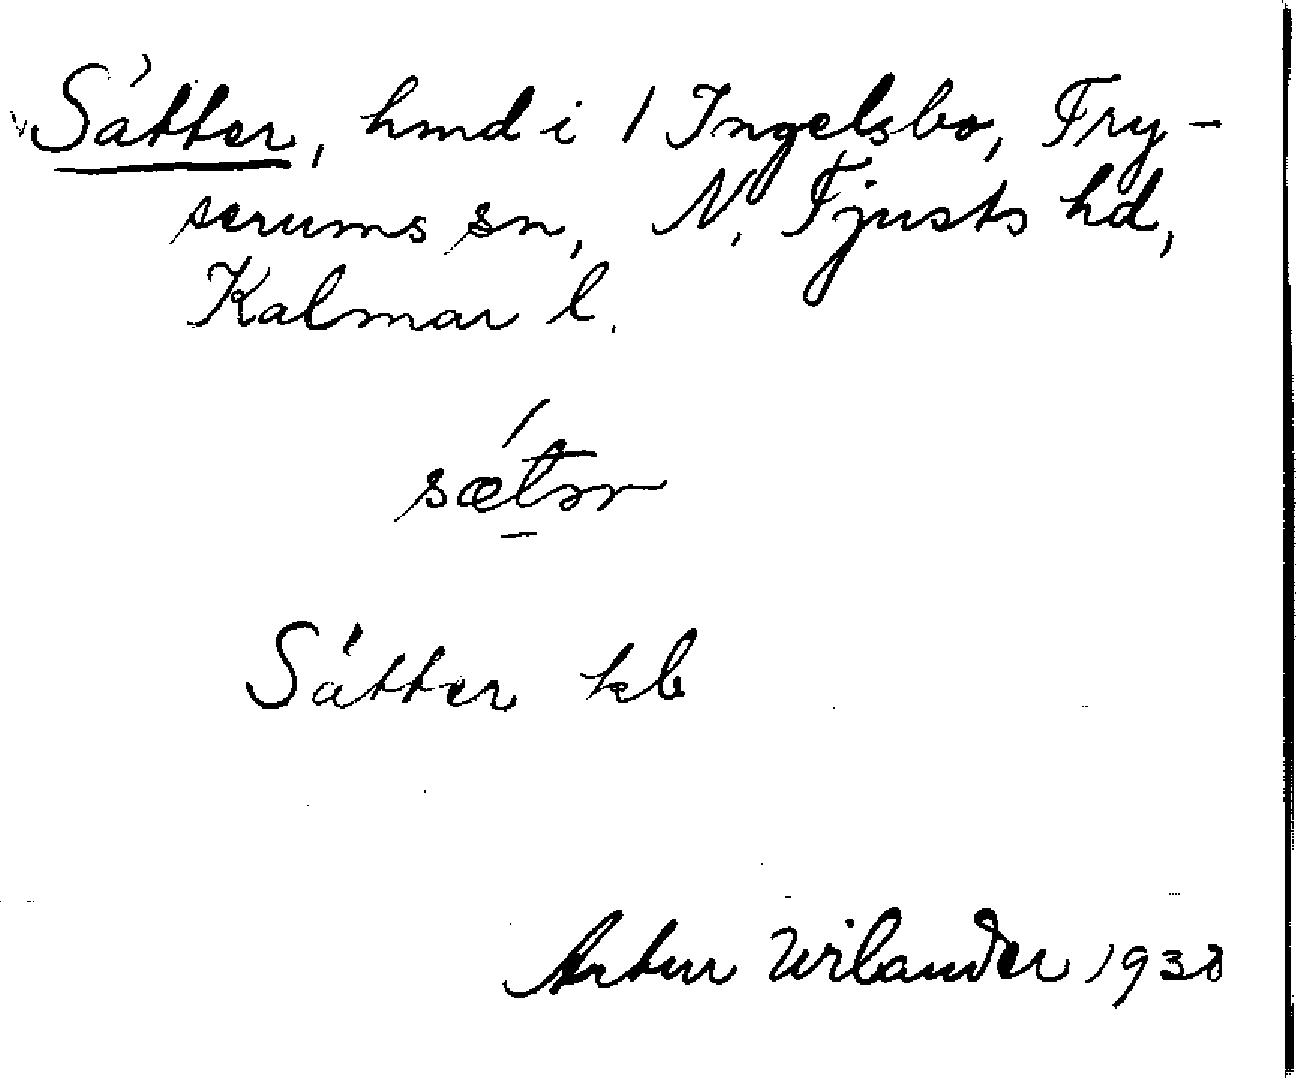 Sätter, hmd i 1 Ingelsbo, Fry-
serums sn, N. Tjusts hd,
Kalmar l.
sǽtər
Sätter kb
Artur Wilander 1938